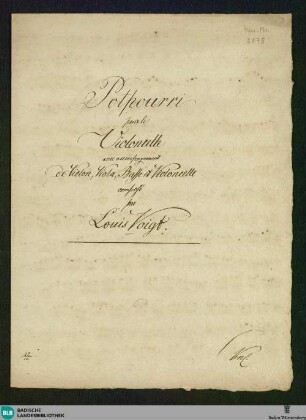 Potpourri
pour le
Violoncelle
avec accompagnement
de Violon, Viola, Basse et Violoncelle
composé
par
Louis Voigt.
BLB
BADISCHE
LANDESBIBLIOTHEK